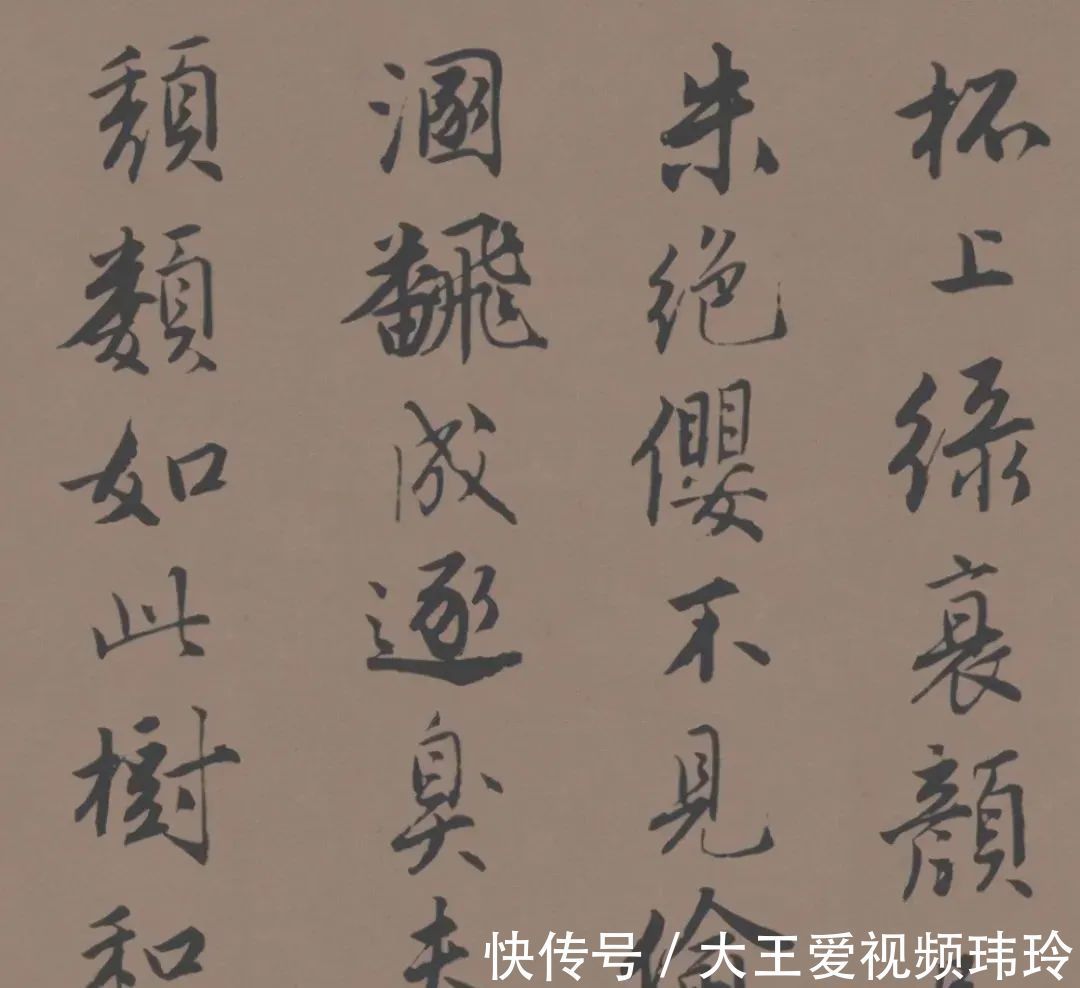 杯上綠衰顏
朱絕纓不見
溷飜成逐臭夫
頽類如此樹和
快传号 / 大王爱视频玮玲